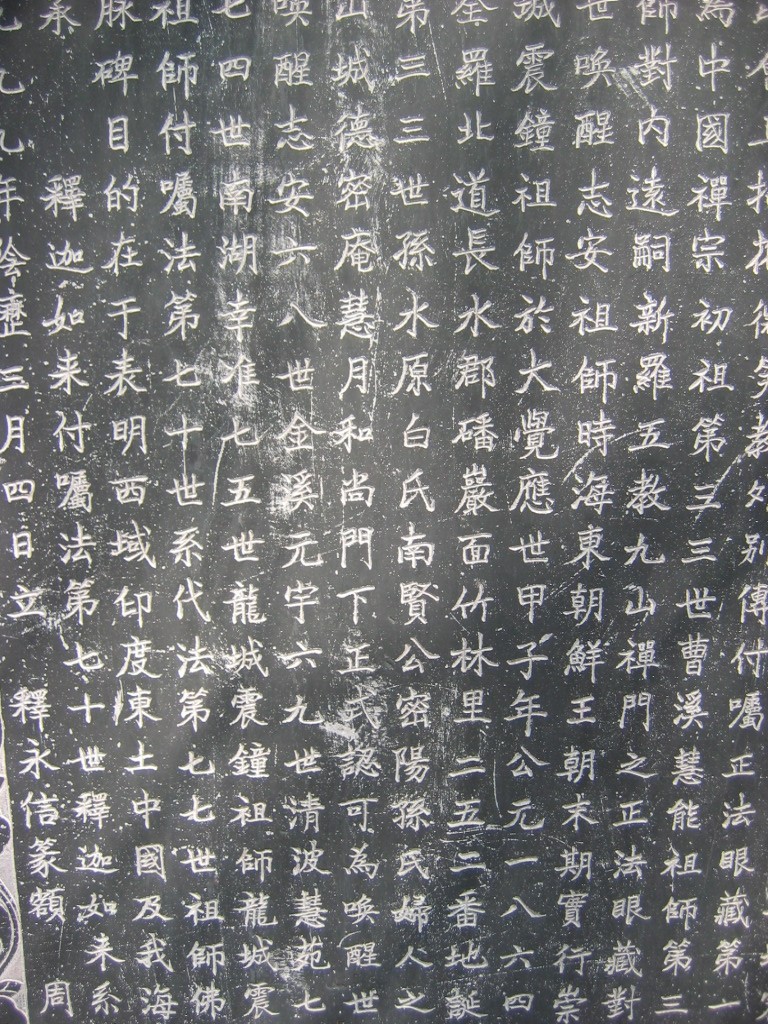 別傳付囑正法眼藏第一
為中國禪宗初祖第三三世曹溪慧能祖師第三
師對內遠嗣新羅五教九山禪門之正法眼藏對
世喚醒志安祖師時海東朝鮮王朝末期實行崇
誠震鐘祖師於大覺應世甲子年公元一八六四
全羅北道長水郡磻巖面竹林里二五二番地誕
第三三世孫水原白氏南賢公密陽孫氏婦人之
山城德密庵慧月和尚門下正式認可為喚醒世
喚醒志安六八世金溪元宇六九世清波慧苑七
七四世南湖幸准七五世龍城震鐘祖師龍城震
祖師付囑法第七十世系代法第七七世祖師佛
脉碑目的在于表明西域印度東土中國及我海
釋迦如来付囑法第七十世釋迦如来系
九九年陰歷三月四日立 釋永信篆額 周